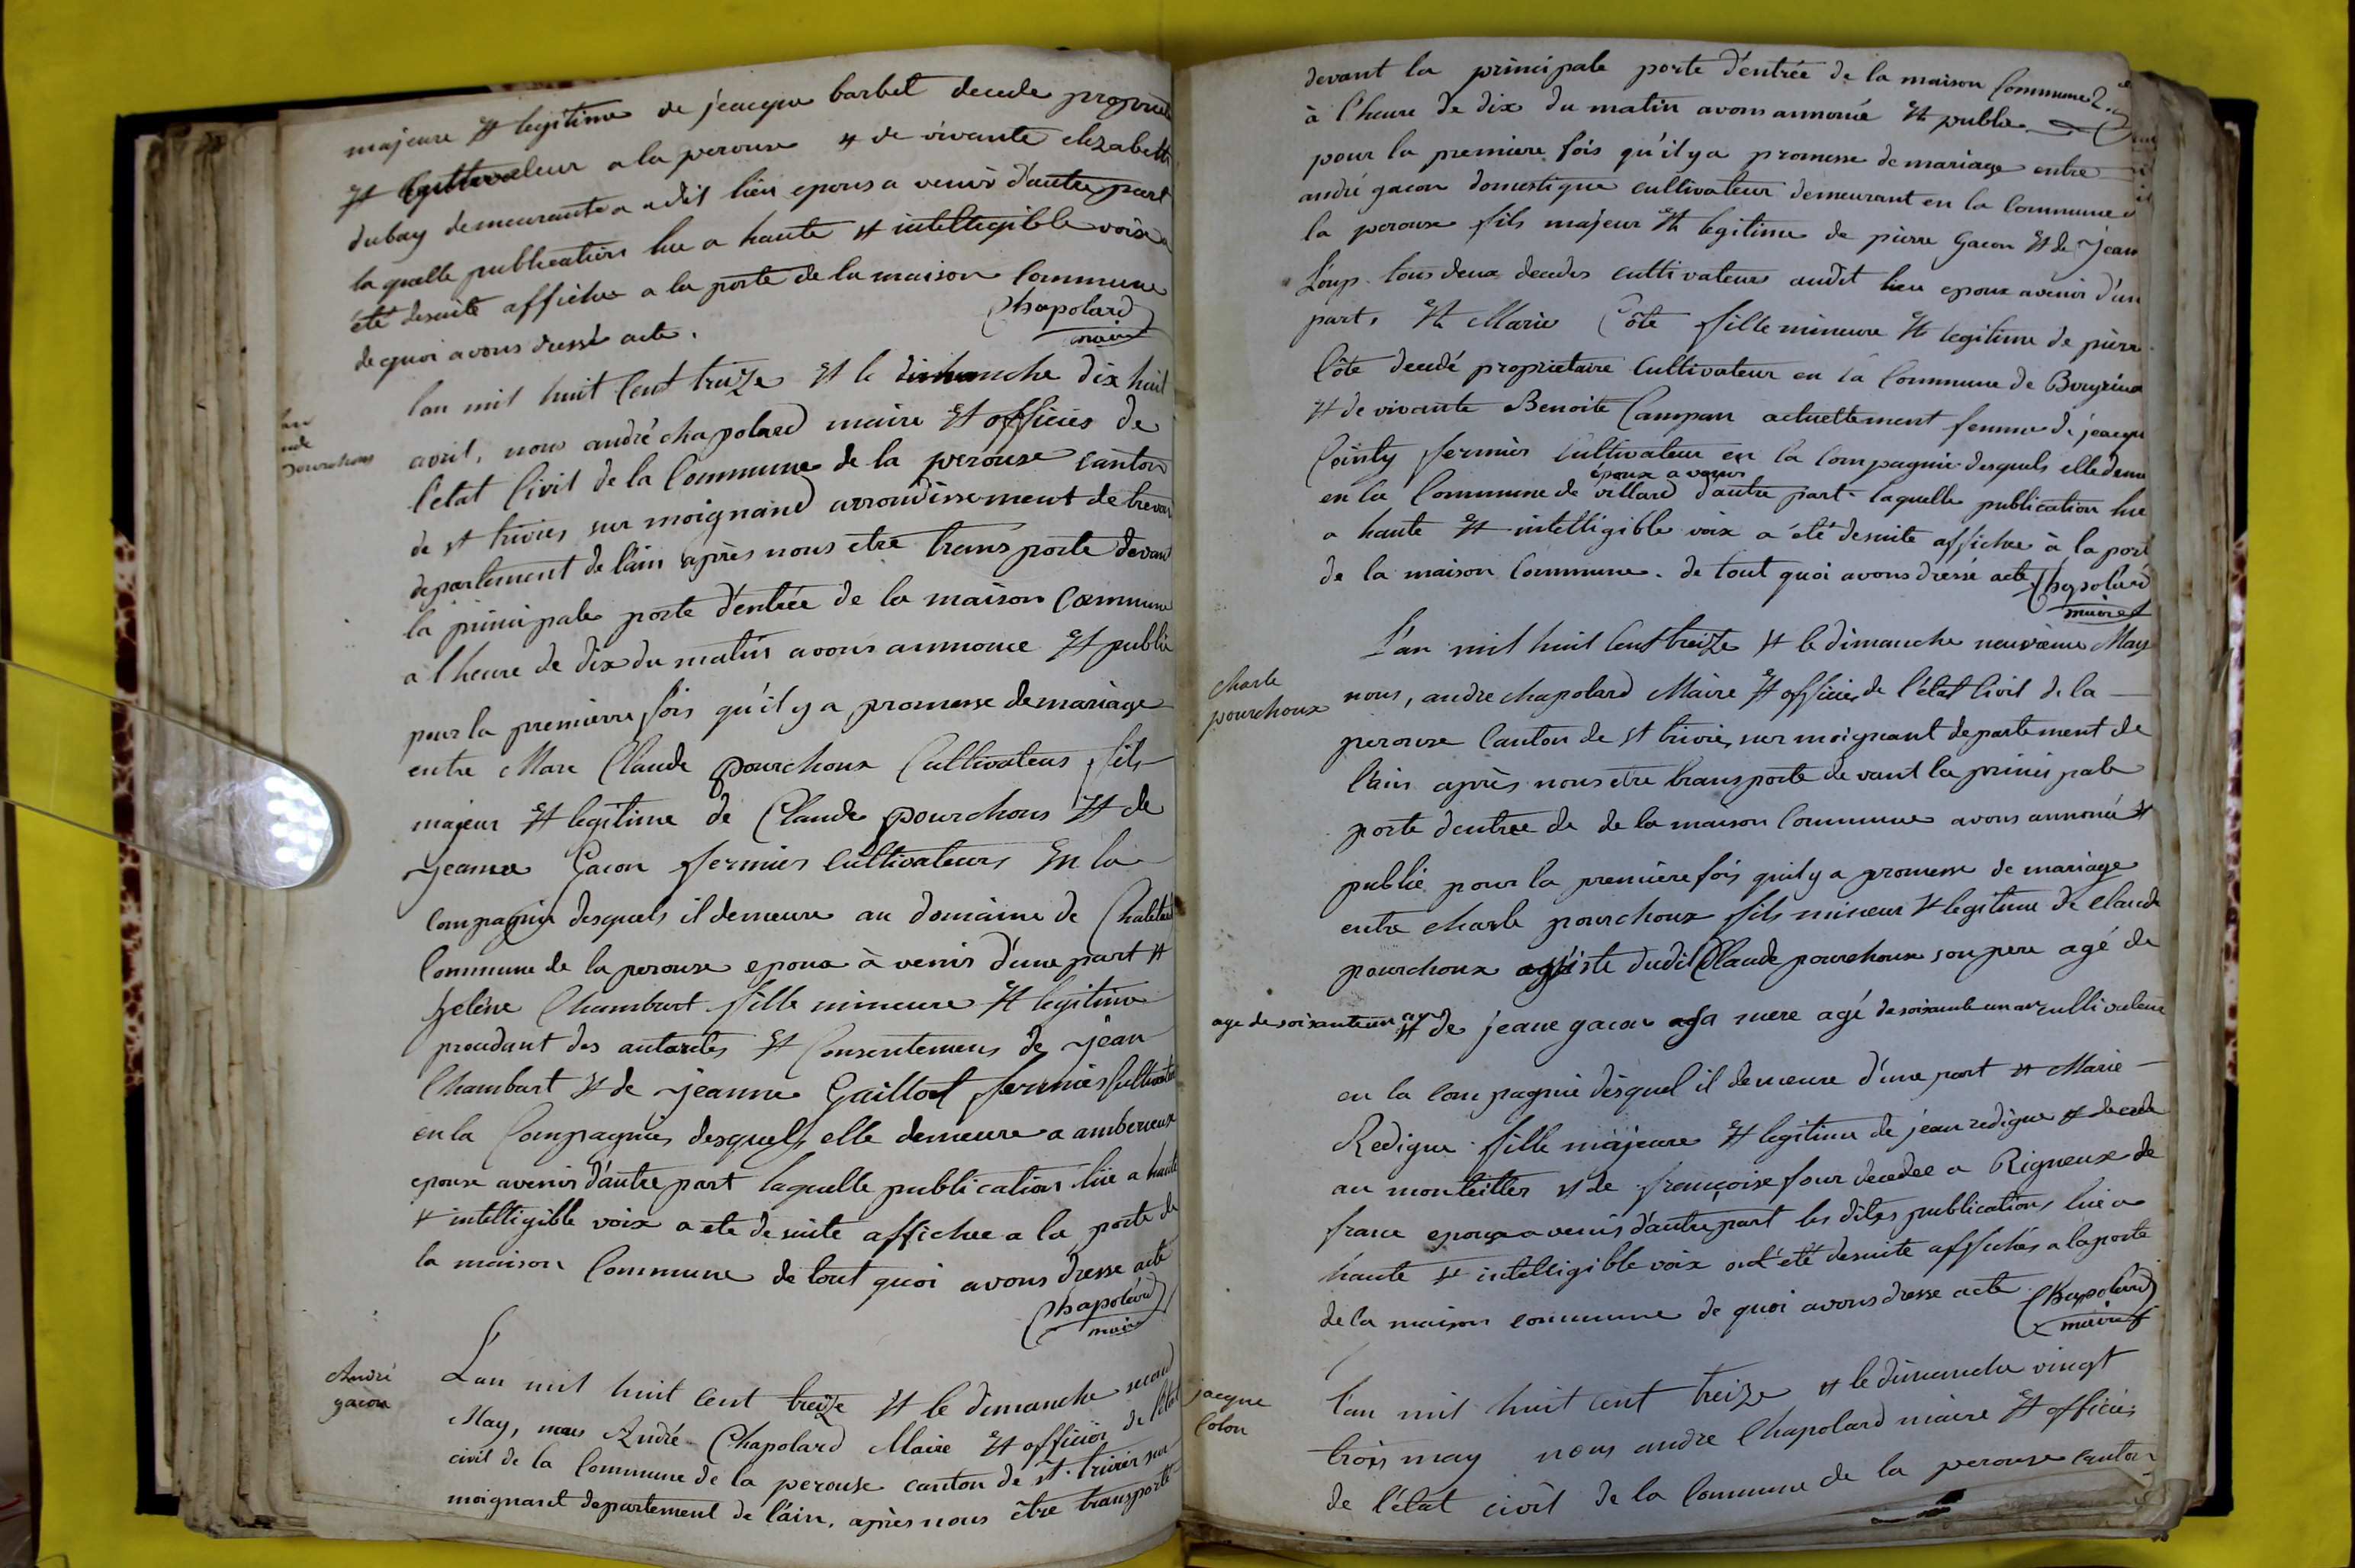 majeure et legitime de jeacque barbet decede proprietai
et Cultivateur a la perouse et de vivante elizabeth
dubay demeurante audit lieu epouse a venir d'autre part
laquelle publication lue a haute et intelligible voix a
été desuite affichee a la porte de la maison Commune
de quoi avons dressé acte.
Chapolard
maire
lan mil huit Cent treize et le dimanche dix huit
avril, nous andré chapolard maire et officier de
l'etat Civil de la Commune de la perouse canton
de st trivier sur moignand arrondissement de trevoux
departement de l'ain après nous etre transporte devant
la principale porte d'entrée de la maison Commune
a l'heure de dix du matin avons annonce et publie
pour la premierre fois qu'il y a promesse de mariage
entre Marc Claude pourchoux Cultivateur fils
majeur et legitime de Claude pourchoux et de
jeanne Gacon fermier cultivateurs en la
compagnie desquels il demeure au domaine de
Commune de la perouse epoux à venir d'une part et
helene Chambart fille mineure et legitime
procedant des autorités et Consentemens de jean
Chambart et de jeanne Gaillot fermier Cultivateur
en la Compagnie desquels elle demeure a amberieux
epouse avenir d'autre part laquelle publication lüe a haute
et intelligible voix a ete de suite affichee a la porte de
la maison Commune de tout quoi avons dresse acte
Chapolard
maire
André
gacon
L'an mil huit Cent treize et le dimanche second
May, nous André Chapolard Maire et officier de l'état
civil de la Commune de la perouse canton de st. trivier sur
moignant departement de l'ain, après nous être transporté
devant la principale porte d'entrée de la maison Commune
à l'heure de dix du matin avons annoncé et publie
pour la premiere fois qu'il y a promesse de mariage entre
andré gacon domestique cultivateur demeurant en la Commune d
la perouse fils majeur et legitime de pierre Gacon et de jean
Loup tous deux decedes cultivateurs audit lieu epoux avenir d'un
part, et Marie Côte fille mineure et legitime de pierre
Côte decedé proprietaire Cultivateur en la Commune de
et de vivante Benoite Campan actuellement femme de jeacque
fermier Cultivateur en la Compagnie desquels elle deme
époux a venir
en la Commune de villard d'autre part laquelle publication lue
a haute et intelligible voix a été desuite affichee à la port
de la maison Commune. de tout quoi avons dressé acte Chapolard
maire
Charle
pourchoux
L'an mil huit Cent treize et le dimanche neuvieme May
nous, andre chapolard Maire et officier de l'état Civil de la
perouse Canton de st trivier sur moignant departement de
l'ain après nous etre transporte devant la principale
porte d'entree de de la maison Commune avons annoncé et
publié pour la première fois quil y a promesse de mariage
entre charle pourchoux fils mineur et legitime de Claude
pourchoux assiste dudit Claude pourchoux son pere agé de
age de soixante un an et de jeane gacon sa mere agé de soixante un an cultivateur
en la compagnie desquel il demeure d'une part et Marie
Redigue fille majeure et legitime de jean redigue et decede
au montellier et de françoise four decedee a Rigneux de
france epouse a venir d'autre part les dites publications lue a
haute et intelligible voix ont été desuite affichés a la porte
de la maison commune de quoi avons dresse acte Chapolard
maire
jacque
Colon
l'an mil huit cent treize et le dimanche vingt
trois may nous andre Chapolard maire et officier
de l'état civil de la Commune de la perouse canton